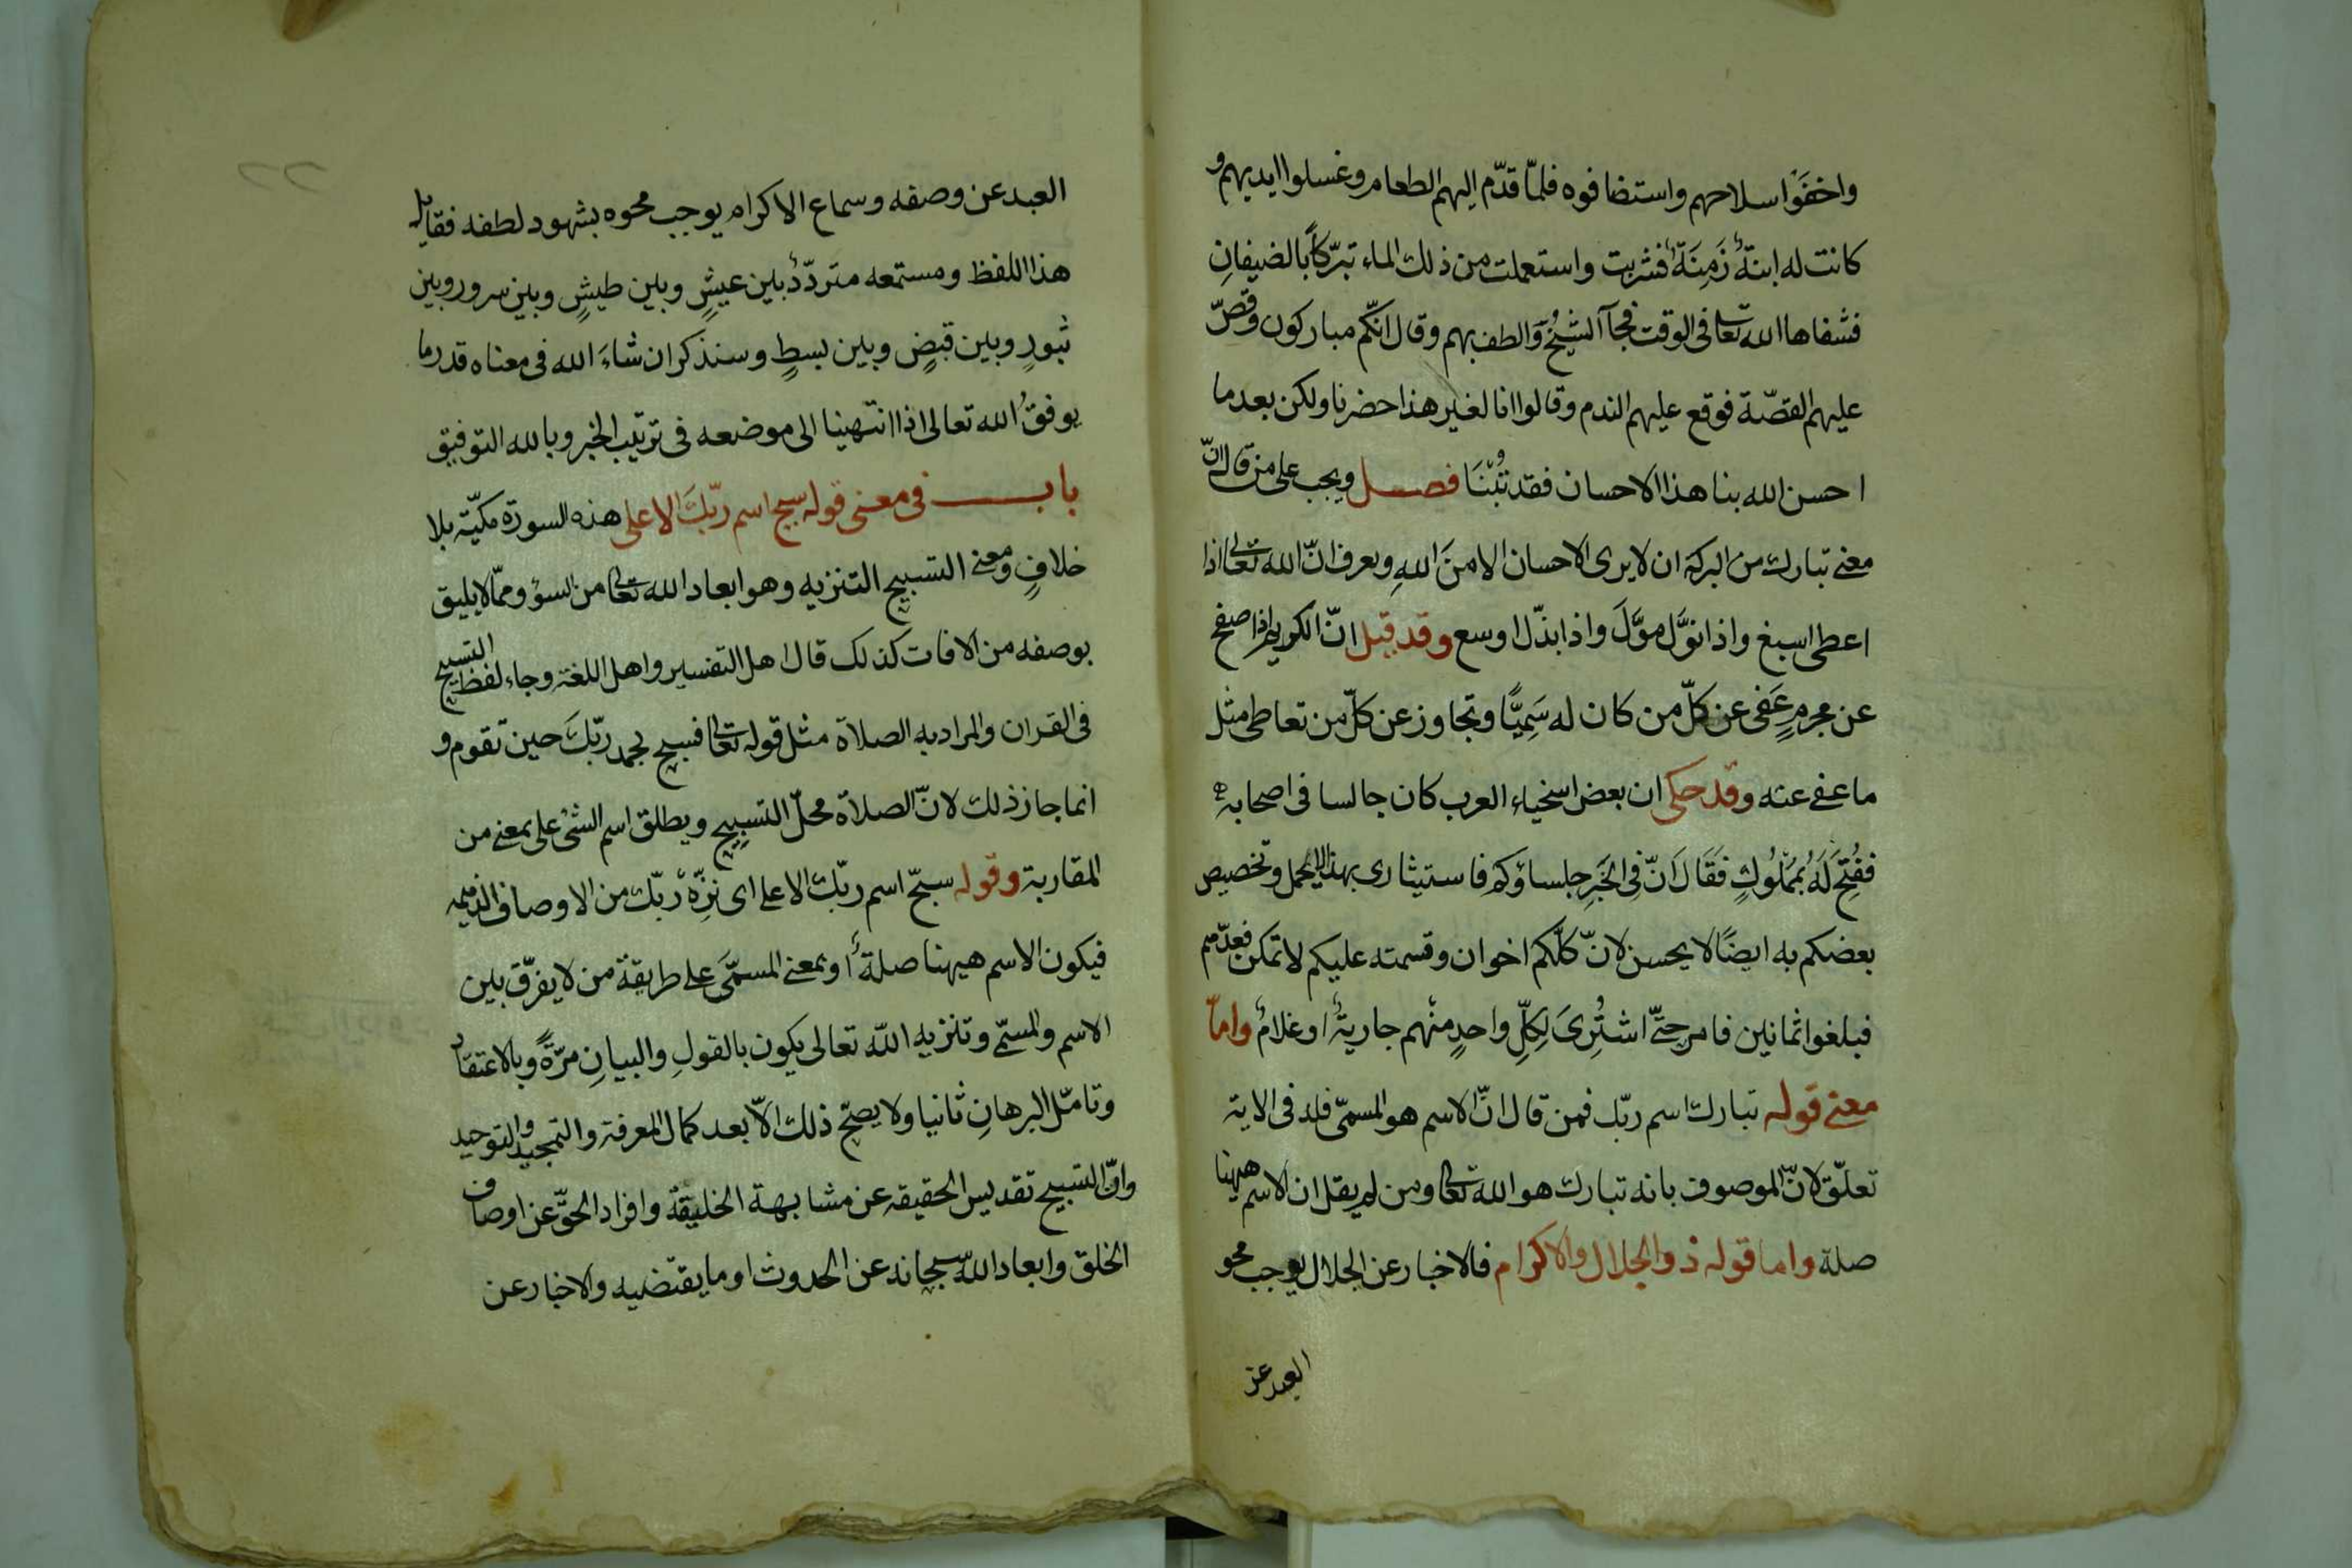 واخفَوْا سلاحهم واستضافوه فلمّا قدّم اليهم الطعام وغسلوا ايديهم و
كانت له ابنةٌ زَمِنَةٌ فشربت واستعملت من ذلك الماء تبرّكاً بالضيفانِ
فشفاها الله تعالى فى الوقت فجآ الشيخُ والطف بهم وقال انكّم مباركون وقصّ
عليهم القصّة فوقع عليهم الندم وقالوا انا لغير هذا حضرنا ولكن بعد ما
احسن الله بنا هذا الاحسان فقد تُبْنَا فصل ويجب على من قال انّ
معنى تبارك من البركة ان لا يرى الاحسان الا منَ اللهِ ويعرف انّ الله تعالى اذا
اعطى اسبغ واذا نوَّل موَّلَ واذا بذّل اوسع وقد قيل انّ الكريم اذا صفح
عن مجرمٍ عَفى عن كلّ من كان له سَمِيًّا وتجاوز عن كلّ من تعاطى مثل
ما عفى عنه وقد حكى ان بعض اسخياء العرب كان جالسا فى اصحابه
ففُتِحَ لَهُ بمَمْلُوكٍ فَقَالَ انّ فِى الخَبَرِ جلساؤكم فاستيثارى بهذا لا يجمل وتخصيص
بعضكم به ايضًا لا يحسن لانّ كلّكم اخوان وقسمته عليكم لا تمكن فعدّهم
فبلغوا ثمانين فامر حتّى اشتُرِىَ لِكلِّ واحدٍ منهم جاريةٌ او غلامٌ وامّا
معنى قوله تبارك اسم ربّك فمن قال انّ الاسم هو المسمّى فله فى الاية
تعلّق لانّ الموصوف بانه تبارك هو الله تعالى ومن لم يقل ان الاسم هيهنا
صلة واما قوله ذو الجلال والاكرام فالاخبار عن الجلال يوجب محو
العبد عن
٢٢
العبد عن وصفه وسماع الاكرام يوجب محوه بشهود لطفه فقايل
هذا اللفظ ومستمعه متردّدٌ بين عيشٍ وبين طيشٍ وبين سرور وبين
ثبورٍ وبين قبضٍ وبين بسطٍ وسنذكر ان شاءَ الله فى معناه قدر ما
يوفقُ الله تعالى اذا انتهينا الى موضعه فى ترتيب الخبر وبالله التوفيق
باب فى معنى قوله سبح اسم ربّكَ الاعلى هذه السورة مكيّة بلا
خلافٍ ومعنى التسبيح التنزيه وهو ابعاد الله تعالى من السؤ وممّا لا يليق
بوصفه من الافات كذلك قال اهل التفسير واهل اللغة وجاء لفظ التسبيح
فى القران والمراد به الصلاة مثل قوله تعالى فسبح بحمد ربّكَ حين تقوم و
انما جاز ذلك لانّ الصلاة محلّ التسبيح ويطلق اسم الشئ على بمعنى من
المقاربة وقوله سبحّ اسم ربّك الاعلى اى نزّه ربّك من الاوصاف الذميمه
فيكون الاسم هيهنا صلةً او بمعنى المسمّى على طريقة من لا يفرّق بين
الاسم والمسمّى وتنزيه اللّه تعالى يكون بالقولِ والبيانِ مرّةً وبالاعتقاد
وتامّل البرهانِ ثانيا ولا يصحّ ذلك الاّ بعد كمال المعرفة والتمجيد والتوحيد
وانّ التسبيح تقديس الحقيقه عن مشابهة الخليقة وافراد الحقّ عن اوصاف
الخلق وابعاد اللّه سبحانه عن الحدوث او ما يقتضيه والاخبار عن